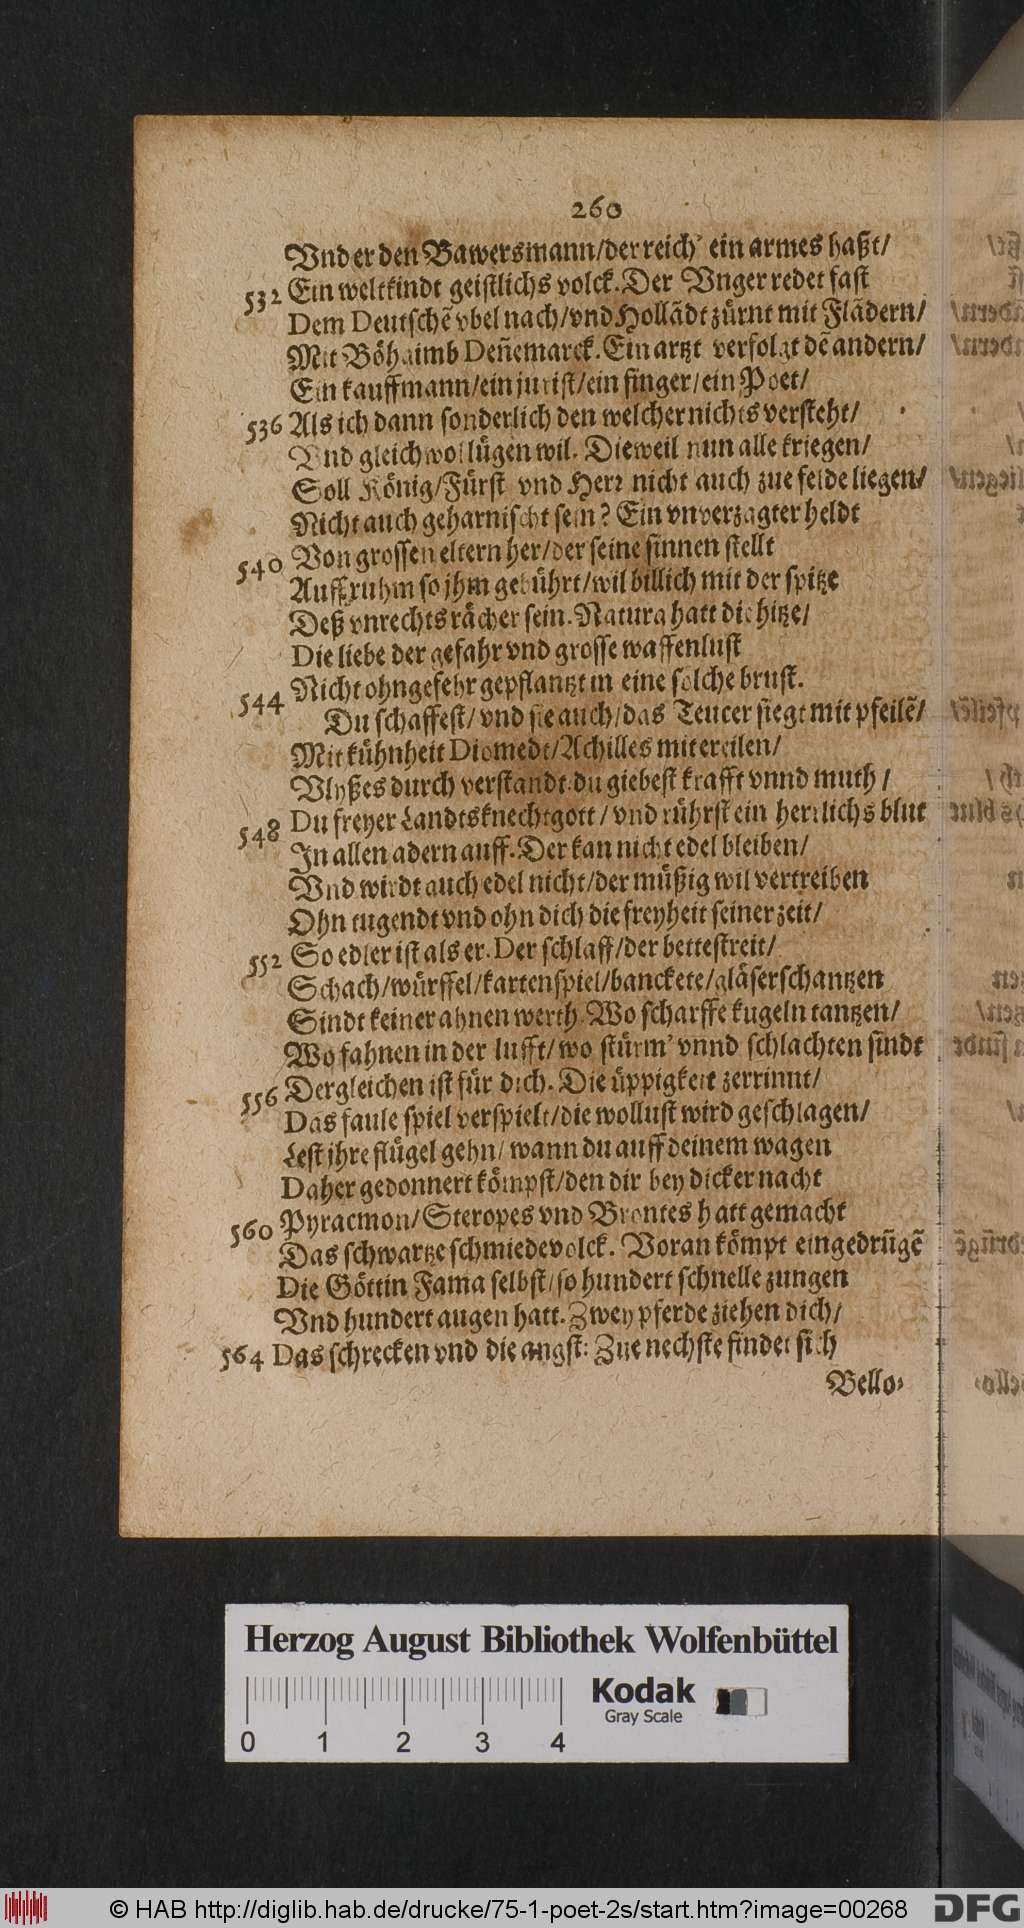 260
Vnd er den Bawersmann/der reich' ein armes haßt/
532 Ein weltkindt geistlichs volck. Der Vnger redet fast
Dem Deutschẽ vbel nach/vnd Hollãdt zürnt mit Flãdern/
Mit Böhaimb Deñemarck. Ein artzt verfolgt dẽ andern/
Ein kauffmann/ein jurist/ein singer/ein Poet/
536 Als ich dann sonderlich den welcher nichts versteht/
Vnd gleichwol lügen wil. Dieweil nun alle kriegen/
Soll König/Fürst vnd Herr nicht auch zue felde liegen/
Nicht auch geharnischt sein? Ein vnverzagter heldt
540 Von grossen eltern her/der seine sinnen stellt
Auff ruhm so jhm gebührt/wil billich mit der spitze
Deß vnrechts rächer sein. Natura hatt die hitze/
Die liebe der gefahr vnd grosse waffenlust
544 Nicht ohngefehr gepflantzt in eine solche brust.
Du schaffest/vnd sie auch/das Teucer siegt mit pfeilẽ/
Mit kühnheit Diomedt/Achilles mit ereilen/
Vlyßes durch verstandt. du giebest krafft vnnd muth/
548 Du freyer Landtsknechtgott/vnd rührst ein herrlichs blut
In allen adern auff. Der kan nicht edel bleiben/
Vnd wirdt auch edel nicht/der müßig wil vertreiben
Ohn tugendt vnd ohn dich die freyheit seiner zeit/
552 So edler ist als er. Der schlaff/der bettestreit/
Schach/würffel/kartenspiel/banckete/gläserschantzen
Sindt keiner ahnen werth. Wo scharffe kugeln tantzen/
Wo fahnen in der lufft/wo stürm' vnnd schlachten sindt
556 Dergleichen ist für dich. Die üppigkeit zerrinnt/
Das faule spiel verspielt/die wollust wird geschlagen/
Lest jhre flügel gehn/wann du auff deinem wagen
Daher gedonnert kömpst/den dir bey dicker nacht
560 Pyracmon/Steropes vnd Brontes hatt gemacht
Das schwartze schmiedevolck. Voran kömpt eingedrũgẽ
Die Göttin Fama selbst/so hundert schnelle zungen
Vnd hundert augen hatt. Zwey pferde ziehen dich/
564 Das schrecken vnd die angst: Zue nechste findet sich
Bello-
Herzog August Bibliothek Wolfenbüttel
Kodak
Gray Scale
0 1 2 3 4
© HAB http://diglib.hab.de/drucke/75-1-poet-2s/start.htm?image=00268 DFG